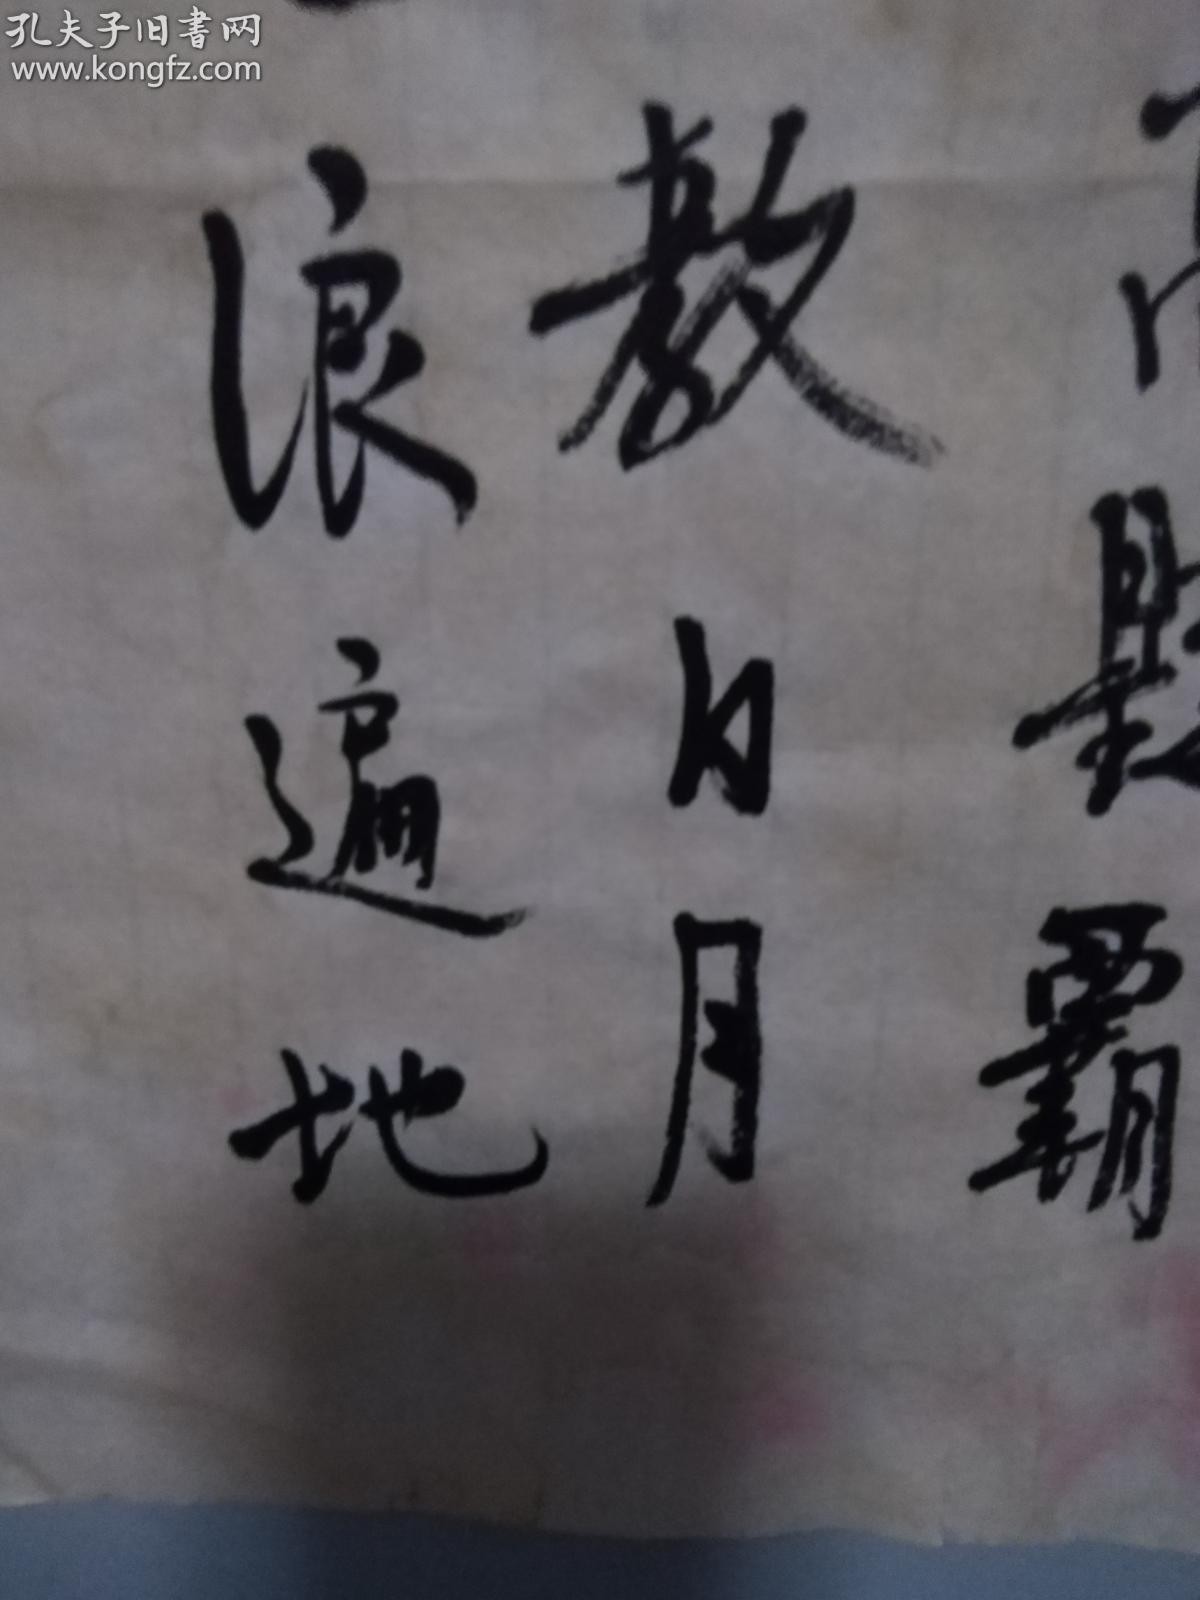 孔夫子旧書网
www.kongfz.com
霸
教日月
浪遍地